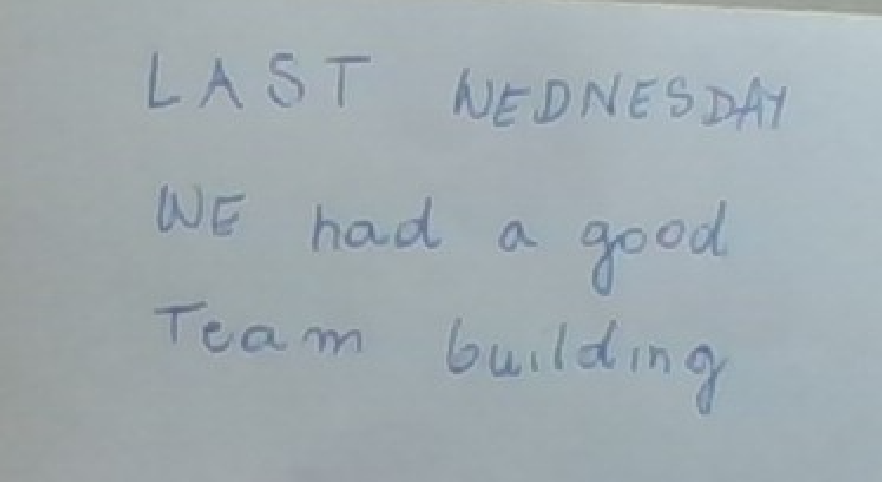 LAST WEDNESDAY
WE had a good
Team building